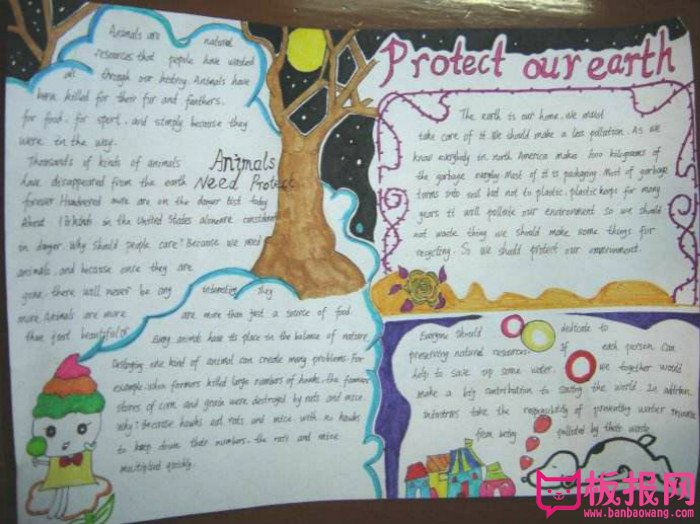 Animals are natural
resources that people have wasted
all through our history. Animals have
been killed for their fur and feathers.
for food, for sport, and simply because they
were in the way.
Thousands of kinds of animals
have disappeared from the earth
forever Hundered more are on the danger list today
About 170 kinds in the United States alone are considered
in danger. Why should people care? Because we need
animals. and because once they are
gone, there will never be any
more. Animals are more
than just beautiful or interesting they
are more than just a source of food.
Every animals have its place in the balance of nature
Destroying one kind of animal can create many problems. For
example, when farmers killed large numbers of hawks, the farmers
stores of corn and grain were destroyed by rats and mice.
Why? Because hawks eat rats and mice with no hawks
to keep down their numbers, the rats and mice
multiplied quickly.
Animals
Need Protect
Protect our earth
The earth is our home. we must
take care of it We should make a less pollution. As we
know everybody in north America makes kilograms of
the garbage everyday Most of it is packaging Most of garbage
turns into soil but not to plastic, plastic keeps for many
years It will pollute our environment So we should
not waste thing we should make some things for
recycling. So we should protect our environment.
Everyone should dedicate to
preserving natural resources. If each person can
help to save up some water. we together would
make a big contribution to saving the world. In addition,
industries take the responsibility of preventing water
from being polluted by their waste
板报网
www.banbaowang.com